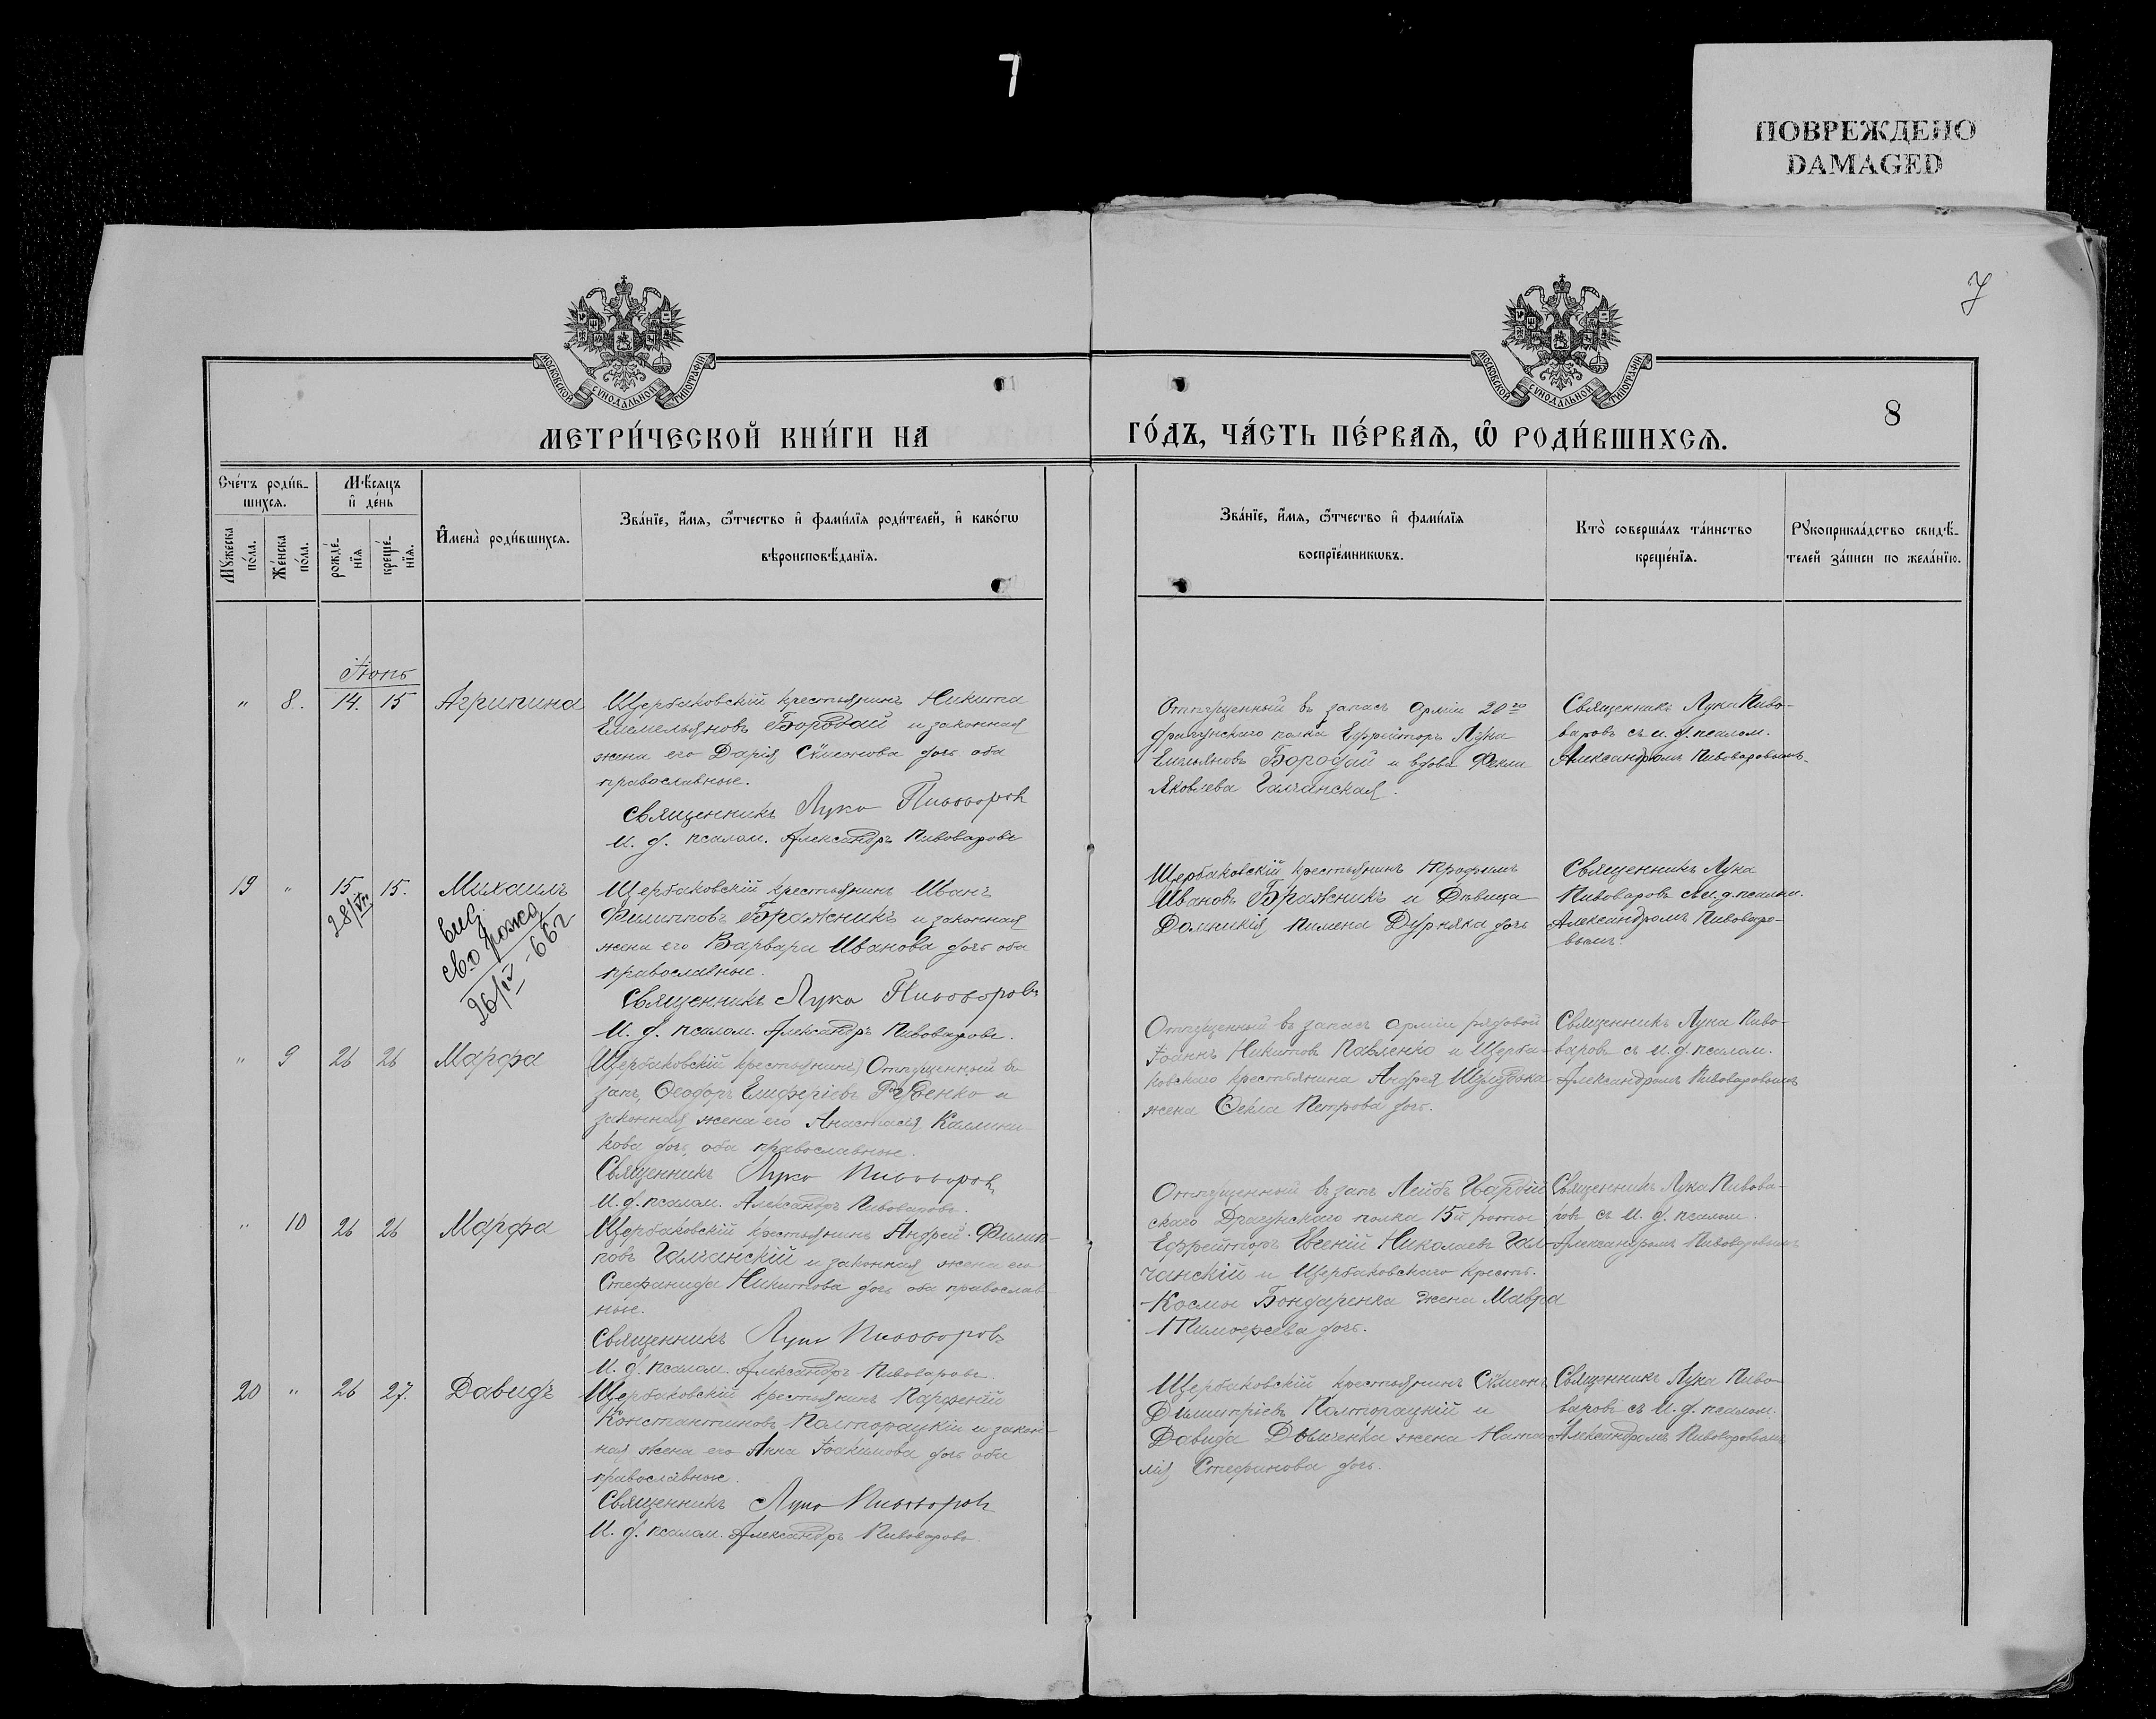 7
ПОВРЕЖДЕНО
DAMAGED
7
МОСКОВСКОЙ СѴНОДАЛЬНОЙ ТИПОГРАФІИ
МОСКОВСКОЙ СѴНОДАЛЬНОЙ ТИПОГРАФІИ
8
МЕТРИ́ЧЕСКОЙ КНИ́ГИ НА
ГО́ДЪ, ЧА́СТЬ ПЕ́РВАѦ, Ѡ҆ РОДИ́ВШИХСѦ.
Сче́тъ роди́в-
шихсѧ.
Мꙋжеска по́ла.
Же́нска по́ла.
Мѣ́сѧцъ
и҆ де́нь
рожде́-
нїѧ
креще́-
нїѧ.
И҆мена̀ роди́вшихсѧ.
Зва́нїе, и҆́мѧ, ѻ҆́тчество и҆ фами́лїѧ роди́телей, и҆ како́гѡ
вѣроисповѣ́данїѧ.
Зва́нїе, и҆́мѧ, ѻ҆́тчество и҆ фами́лїѧ
воспрїе́мникѡвъ.
Кто̀ соверша́лъ та́инство
креще́нїѧ.
Рꙋкоприкла́дство свидѣ́-
телей за́писи по жела́нїю.
Іюнь
" 8. 14. 15 Агрипина
Щербаковскій крестьянинъ Никита
Емельяновъ Бородай и законная
жена его Дарія Сѵмеонова дочь оба
православные.
Священникъ Лука Пивоваровъ
И. д. псалом. Александръ Пивоваровъ
Отпущенный въ запасъ арміи 20го
драгунскаго полка Ефрейторъ Лука
Бородай и вдова Фекла
Яковлева Галчанская.
Священникъ Лука Пиво-
варовъ съ и. д. псалом.
Александромъ Пивоваровымъ.
19 " 15. 15. Михаилъ
28/VI
выд
св.о рожд
26/IV-66г
Щербаковскій крестьянинъ Иванъ
Филипповъ Бражникъ и законная
жена его Варвара Иванова дочь оба
православные.
Священникъ Лука Пивоваровъ
И. д. псалом. Александръ Пивоваровъ.
Щербаковскій крестьянинъ
Ивановъ Бражникъ и Дѣвица
Домникія Пимена Дурняка дочь
Священникъ Лука
Пивоваровъ съ и. д. псалом.
Александромъ Пивоваро-
вымъ.
" 9 26 26 Марфа
(Щербаковскій крестьянинъ) Отпущенный въ
зап., Ѳеодоръ Елиферіевъ и
законная жена его Анастасія Каллини-
кова дочь, оба православные.
Священникъ Лука Пивоваровъ
И. д. псалом. Александръ Пивоваровъ.
Отпущенный въ запасъ арміи рядовой
Іоаннъ Никитовъ Павленко и Щерба-
ковскаго крестьянина Андрея
жена Ѳекла Петрова дочь.
Священникъ Лука Пиво-
варовъ съ И. д. псалом.
Александромъ Пивоваровымъ
" 10 26 26 Марфа
Щербаковскій крестьянинъ Андрей Филип-
повъ Галчанскій и законная жена его
Стефанида Никитова дочь оба православ-
ные.
Священникъ Лука Пивоваровъ
И. д. псалом. Александръ Пивоваровъ.
Отпущенный въ зап. Лейбъ Гвардій
скаго Драгунскаго полка 15й роты
Ефрейторъ Евгеній Николаевъ Гал-
чанскій и Щербаковскаго крестъ.
Космы Бондаренка жена Мавра
Тимоѳеева дочь.
Священникъ Лука Пивова-
ровъ съ И. д. псалом.
Александромъ Пивоваровымъ
20 " 26 27. Давидъ
Щербаковскій крестьянинъ Парфеній
Константиновъ Полторацкій и закон-
ная жена его Анна Іоакимова дочь оба
православные.
Священникъ Лука Пивоваровъ
И. д. псалом. Александръ Пивоваровъ.
Щербаковскій крестьянинъ Сѵмеонъ
Димитріевъ Полторацкій и
Давида жена Ната-
лія Стефанова дочь.
Священникъ Лука Пиво-
варовъ съ И. д. псалом.
Александромъ Пивоваровымъ